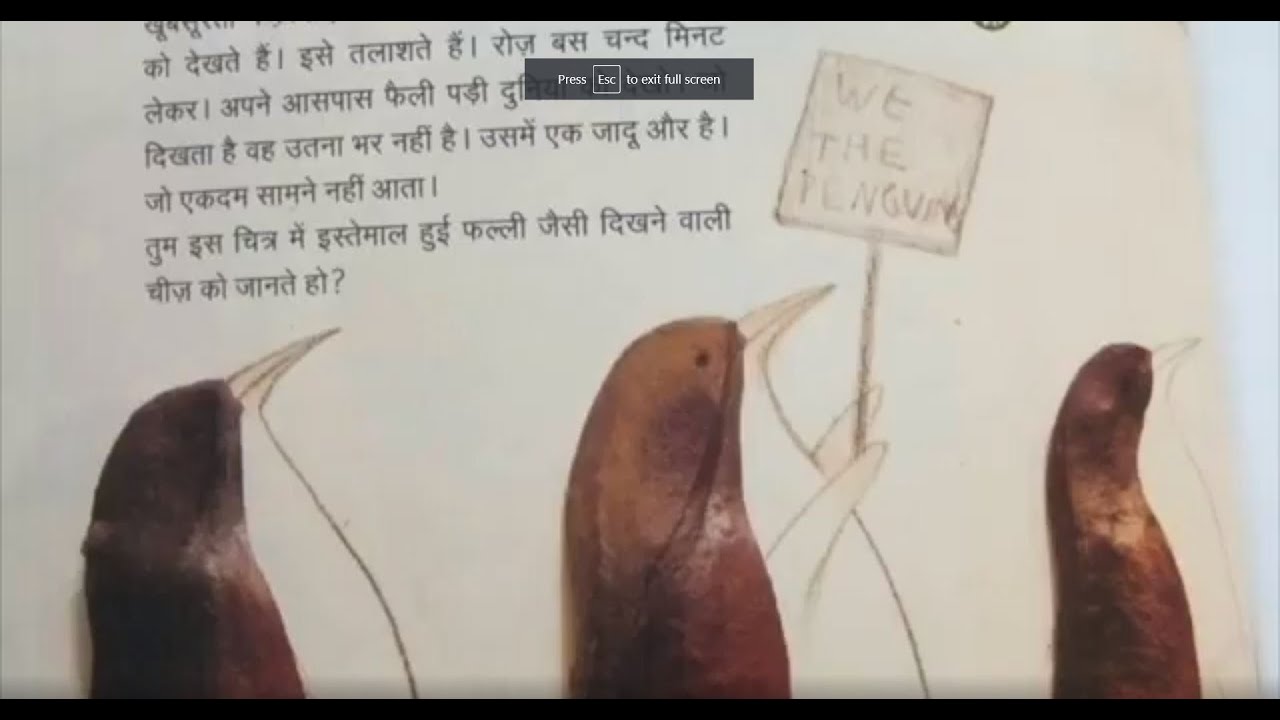 को देखते हैं। इसे तलाशते हैं। रोज़ बस चन्द मिनट
लेकर। अपने आसपास फैली पड़ी दुनिया
दिखता है वह उतना भर नहीं है। उसमें एक जादू और है।
जो एकदम सामने नहीं आता।
तुम इस चित्र में इस्तेमाल हुई फल्ली जैसी दिखने वाली
चीज़ को जानते हो?
Press Esc to exit full screen
WE
THE
PENGUIN